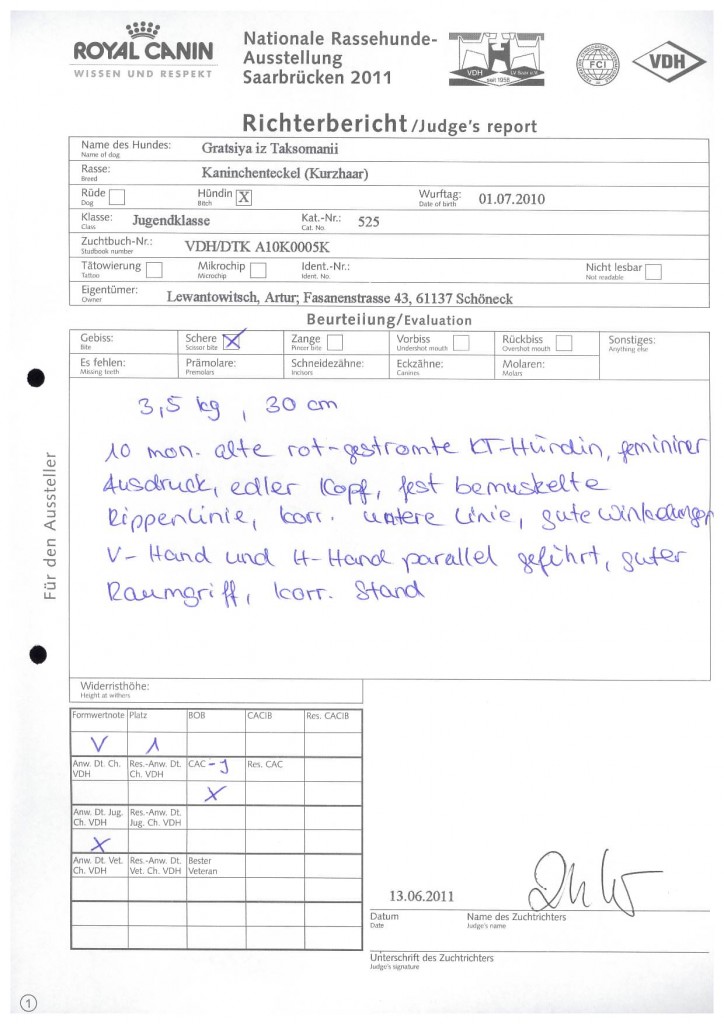 ROYAL CANIN
WISSEN UND RESPEKT
Nationale Rassehunde-
Ausstellung
Saarbrücken 2011
VDH
LV Saar e.V.
seit 1958
FCI
VDH
Richterbericht/Judge's report
Name des Hundes: Gratsiya iz Taksomanii
Name of dog
Rasse: Kaninchenteckel (Kurzhaar)
Breed
Rüde Hündin X Wurftag: 01.07.2010
Dog Bitch Date of birth
Klasse: Jugendklasse Kat.-Nr.: 525
Class Cat. No.
Zuchtbuch-Nr.: VDH/DTK A10K0005K
Studbook number
Tätowierung Mikrochip Ident.-Nr.: Nicht lesbar
Tattoo Microchip Ident. No. Not readable
Eigentümer: Lewantowitsch, Artur; Fasanenstrasse 43, 61137 Schöneck
Owner
Beurteilung/Evaluation
Gebiss: Schere X Zange Vorbiss Rückbiss Sonstiges:
Bite Scissor bite Pincer bite Undershot mouth Overshot mouth Anything else
Es fehlen: Prämolare: Schneidezähne: Eckzähne: Molaren:
Missing teeth Premolars Incisors Canines Molars
3,5 kg, 30 cm
10 mon. alte rot-gestromte KT-Hündin, femininer
Ausdruck, edler Kopf, fest bemuskelte
Rippenlinie, korr. untere Linie, gute Winkelungen
V-Hand und H-Hand parallel geführt, guter
Raumgriff, korr. Stand
Für den Aussteller
Widerristhöhe:
Height at withers
Formwertnote Platz BOB CACIB Res. CACIB
V 1
Anw. Dt. Ch. VDH Res.-Anw. Dt. Ch. VDH CAC-J Res. CAC
X
Anw. Dt. Jug. Ch. VDH Res.-Anw. Dt. Jug. Ch. VDH
X
Anw. Dt. Vet. Ch. VDH Res.-Anw. Dt. Vet. Ch. VDH Bester Veteran
13.06.2011
Datum Name des Zuchtrichters
Date Judge's name
Unterschrift des Zuchtrichters
Judge's signature
1